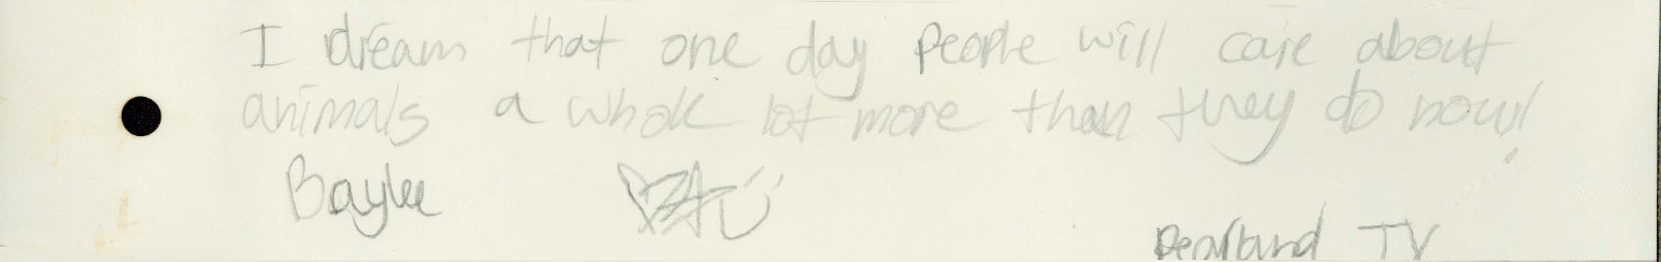 I dream that one day people will care about
animals a whole lot more than they do now!
Baylee
Pearland TX